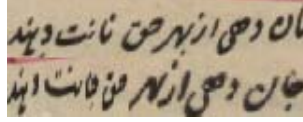 نان دهی از بهر حق نانت دهند
جان دهی از بهر حق جانت دهند